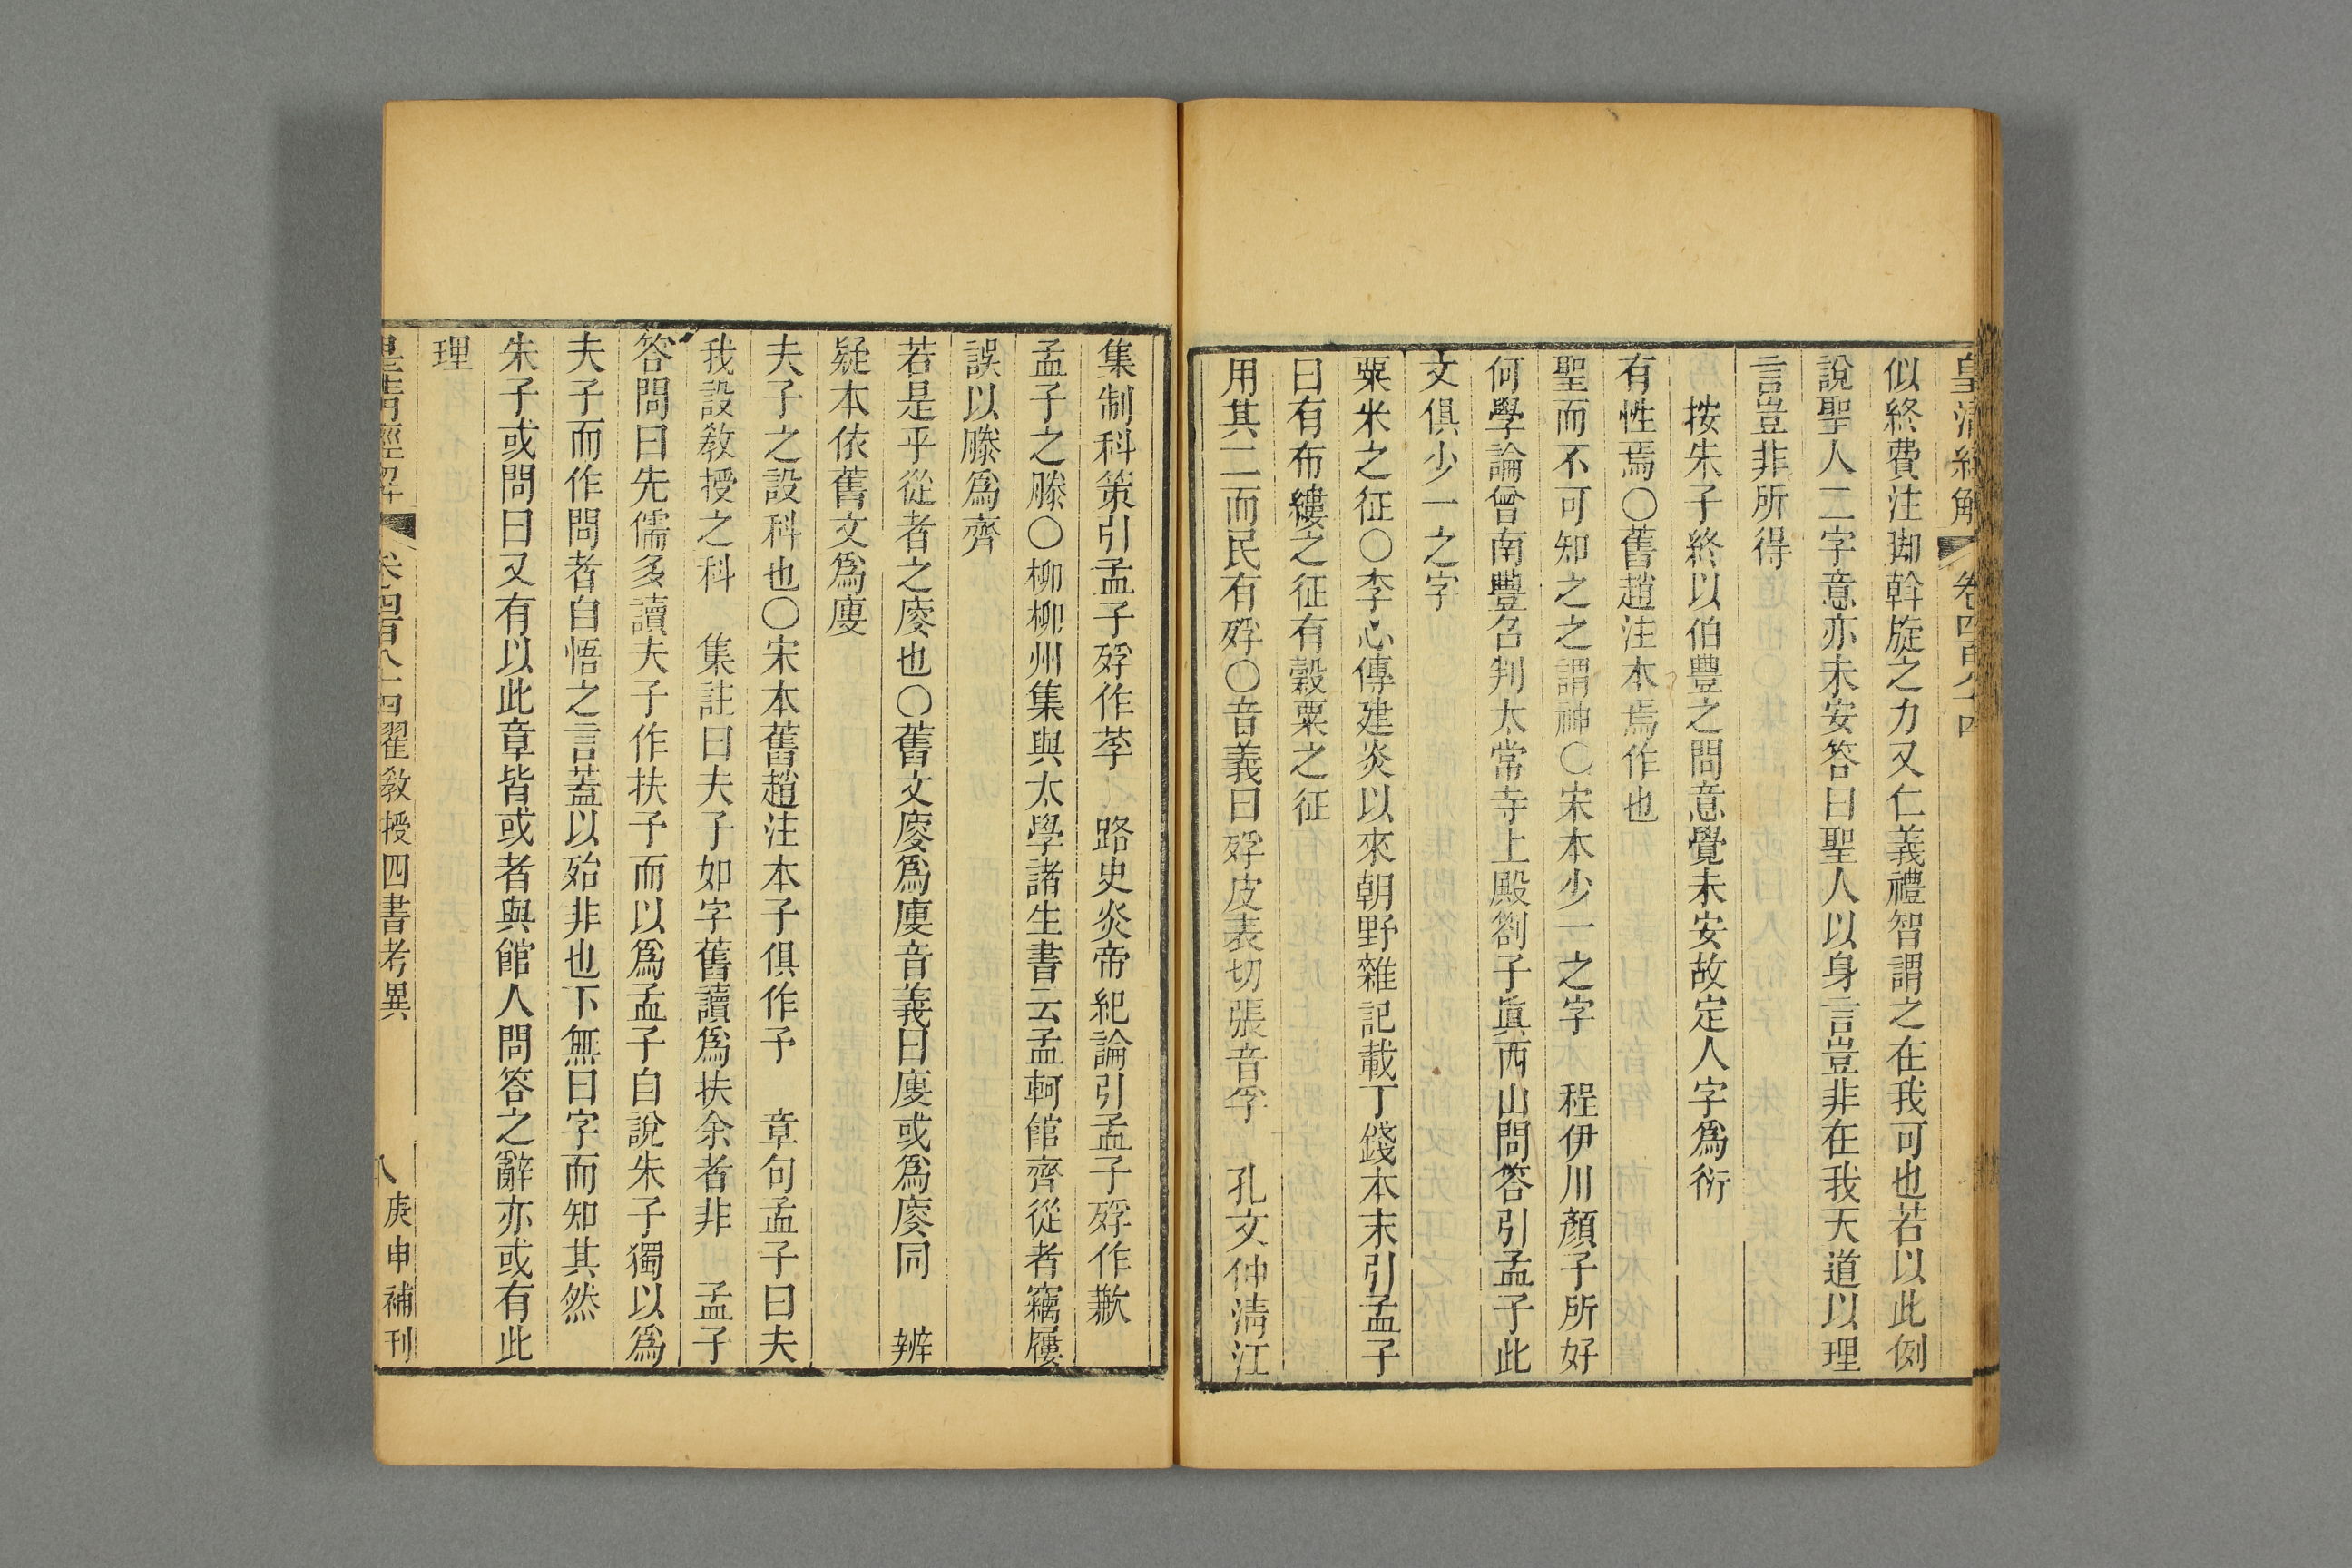 皇清經解 卷四百八十四
似終費注腳斡旋之力又仁義禮智謂之在我可也若以此例
說聖人二字意亦未安答曰聖人以身言豈非在我天道以理
言豈非所得
按朱子終以伯豐之問意覺未安故定人字爲衍
有性焉〇舊趙注本焉作也
聖而不可知之之謂神〇宋本少一之字 程伊川顏子所好
何學論曾南豐名判太常寺上殿劄子眞西山問答引孟子此
文俱少一之字
粟米之征〇李心傳建炎以來朝野雜記載丁錢本末引孟子
曰有布縷之征有穀粟之征
用其二而民有殍〇音義曰殍皮表切張音孚 孔文仲淸江
集制科策引孟子殍作莩 路史炎帝紀論引孟子殍作歉
孟子之滕〇柳柳州集與太學諸生書云孟軻館齊從者竊屨
誤以滕爲齊
若是乎從者之廋也〇舊文廋爲廀音義曰廀或爲廋同 辨
疑本依舊文爲廀
夫子之設科也〇宋本舊趙注本子俱作予 章句孟子曰夫
我設敎授之科 集註曰夫子如字舊讀爲扶余者非 孟子
答問曰先儒多讀夫子作扶予而以爲孟子自說朱子獨以爲
夫子而作問者自悟之言蓋以殆非也下無曰字而知其然
朱子或問曰又有以此章皆或者與館人問答之辭亦或有此
理
皇清經解 卷四百八十四翟敎授四書考異 八 庚申補刊